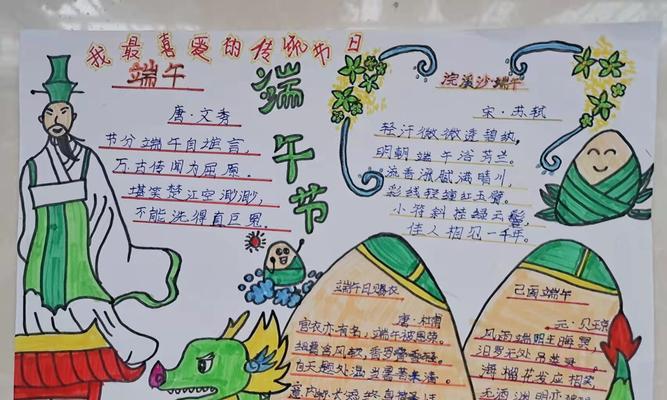 我最喜爱的传统节日
端午
唐·文秀
节分端午自谁言,
万古传闻为屈原。
堪笑楚江空渺渺,
不能洗得直臣冤。
端午节
浣溪沙端午
宋·苏轼
轻汗微微透碧纨,
明朝端午浴芳兰。
流香涨腻满晴川,
彩线轻缠红玉臂。
小符斜挂绿云鬟,
佳人相见一千年。
端午日赐衣
唐·杜甫
宫衣亦有名,端午被恩荣。
细葛含风软,香罗叠雪轻。
自天题处湿,当暑著来清。
意内称长短,终身荷圣情
己酉端午
元·贝琼
风雨端阳生晦冥,
汨罗无处吊英灵。
海榴花发应相笑
无酒渊明亦独醒